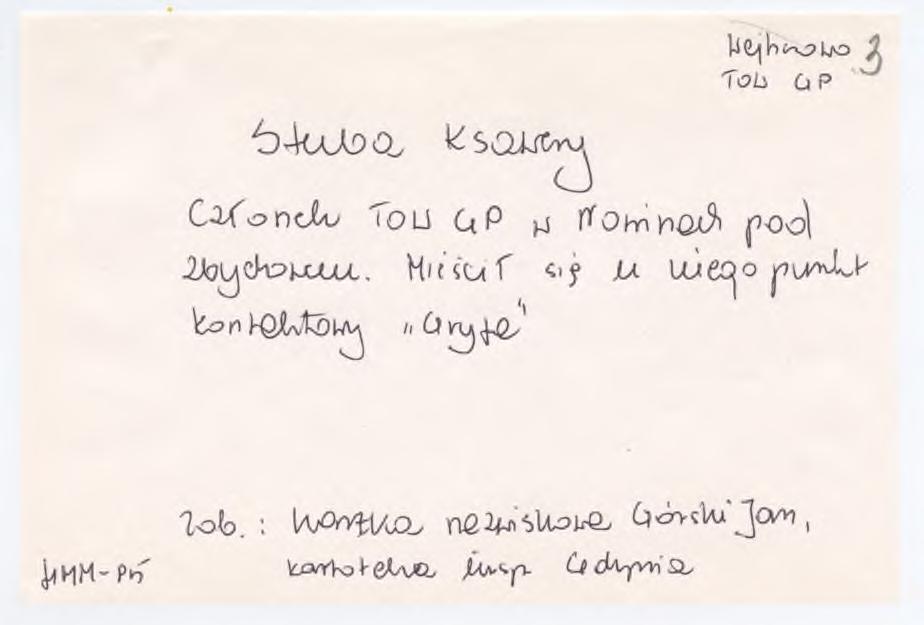 Wejherowo 3
TOW GP
Stuba Ksawery
Członek TOW GP w Nominach pod
Zbychowem. Mieścił się u niego punkt
kontaktowy „Gryfa"
Zob.: teczka nazwiskowa Górski Jan,
kartoteka insp. Gdynia